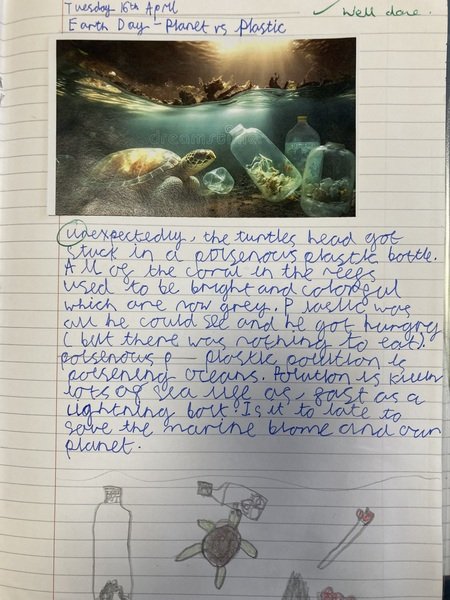 Tuesday 16th April
✓ Well done.
Earth Day - Planet vs Plastic
dreamstime
unexpectedly, the turtles head got
stuck in a poisenous plastic bottle.
All of the coral in the reefs
used to be bright and colorful
which are now grey. Plastic was
all he could see and he got hungry
( but there was nothing to eat.
poisenous p — plastic pollution is
poisening oceans. Polution is killing
lots of sea life as, fast as a
lightning bolt! Is it to late to
save the marine biome and our
planet.